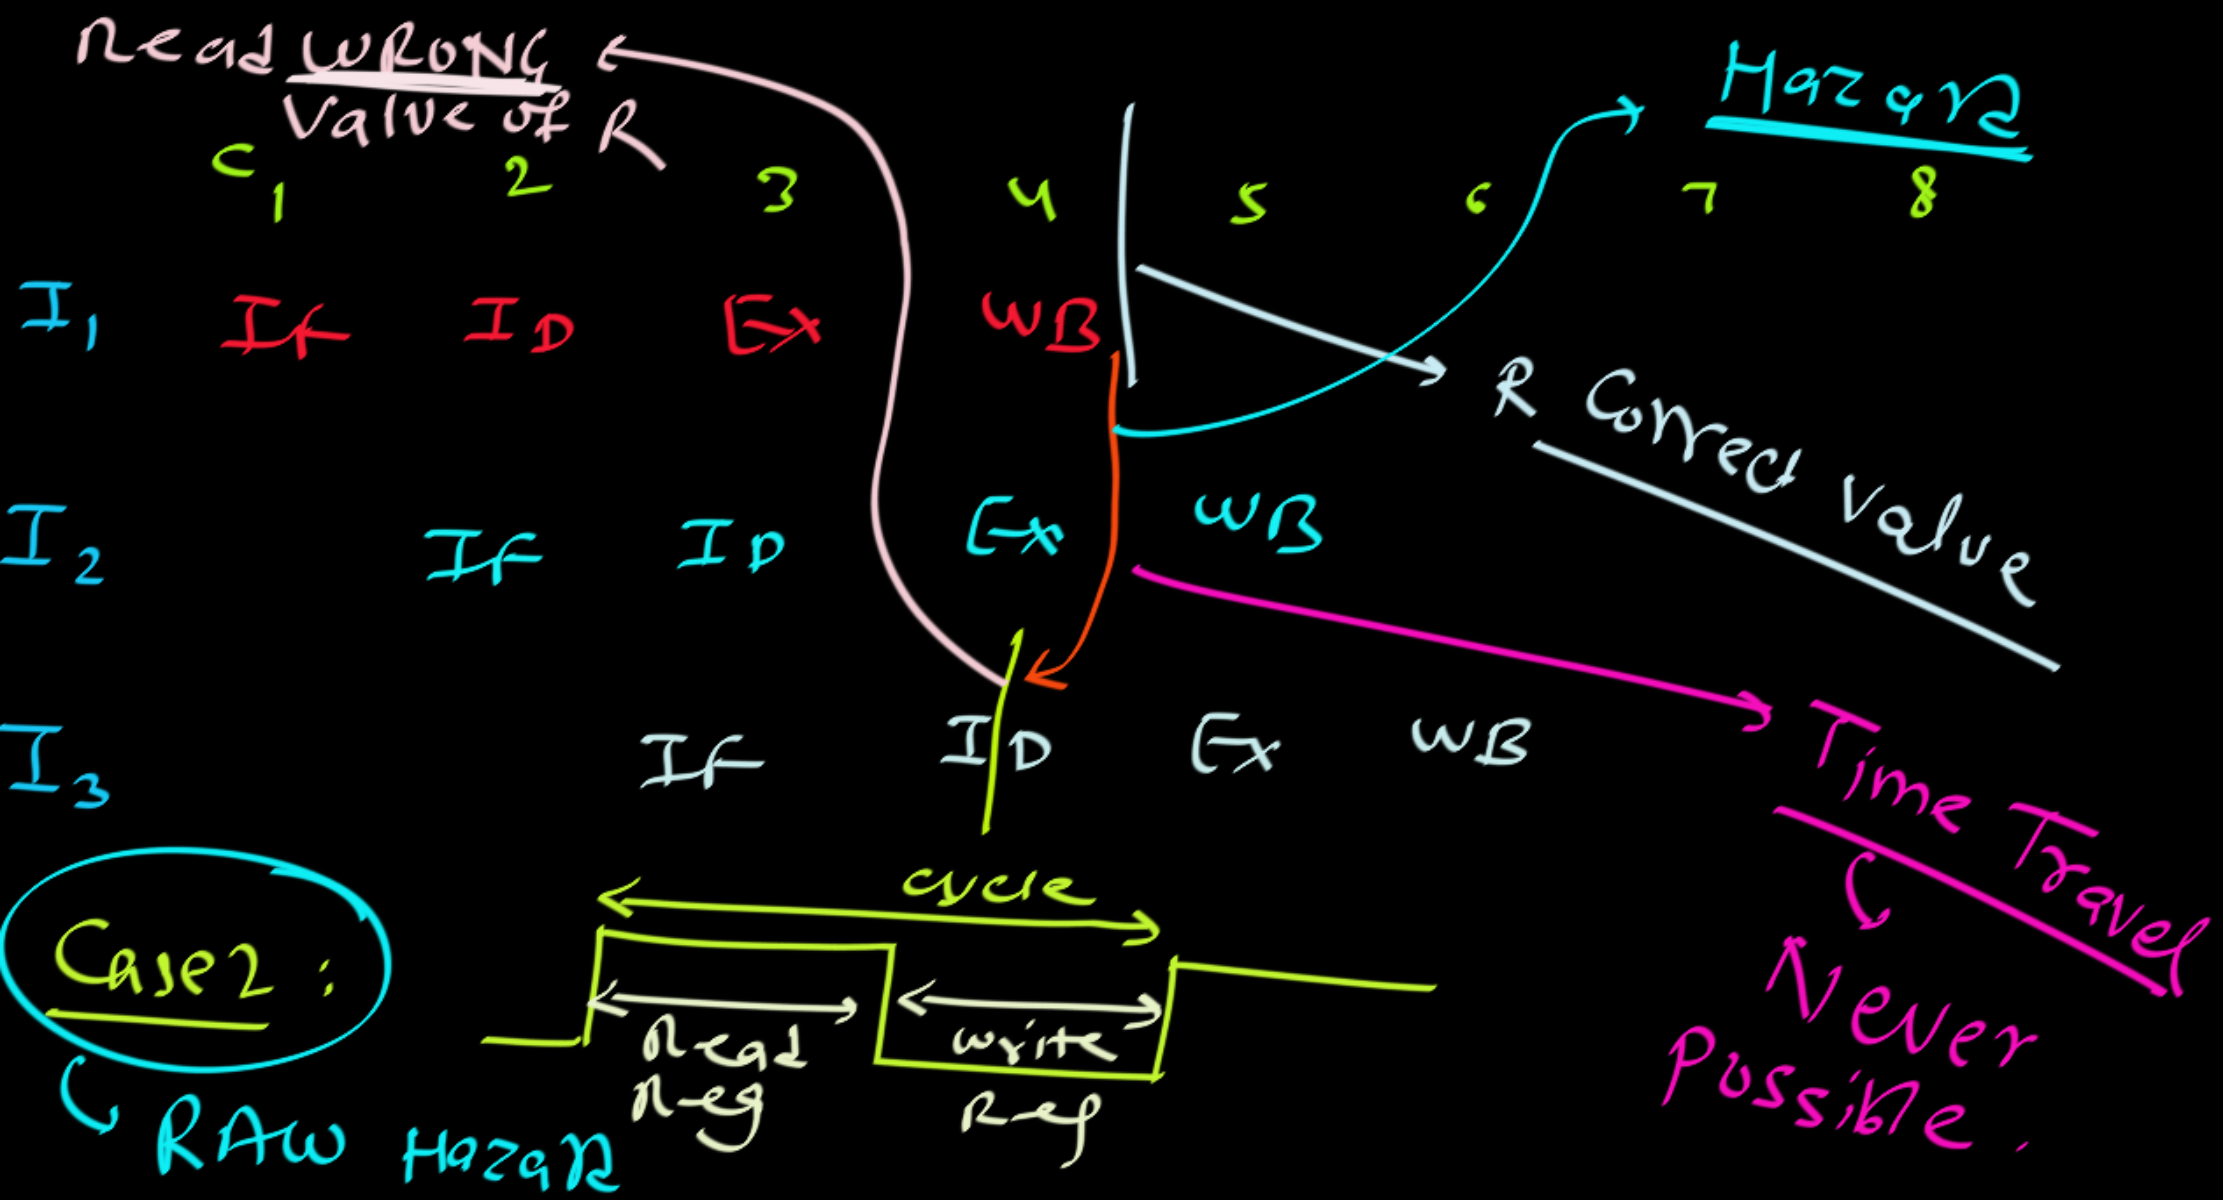 Read WRONG
Value of R
Hazard
C1 2 3 4 5 6 7 8
I1 IF ID Ex WB
R Correct Value
I2 IF ID Ex WB
I3 IF ID Ex WB
Time Travel
Never
Possible.
cycle
Case2:
Read
Reg
write
Reg
RAW Hazard